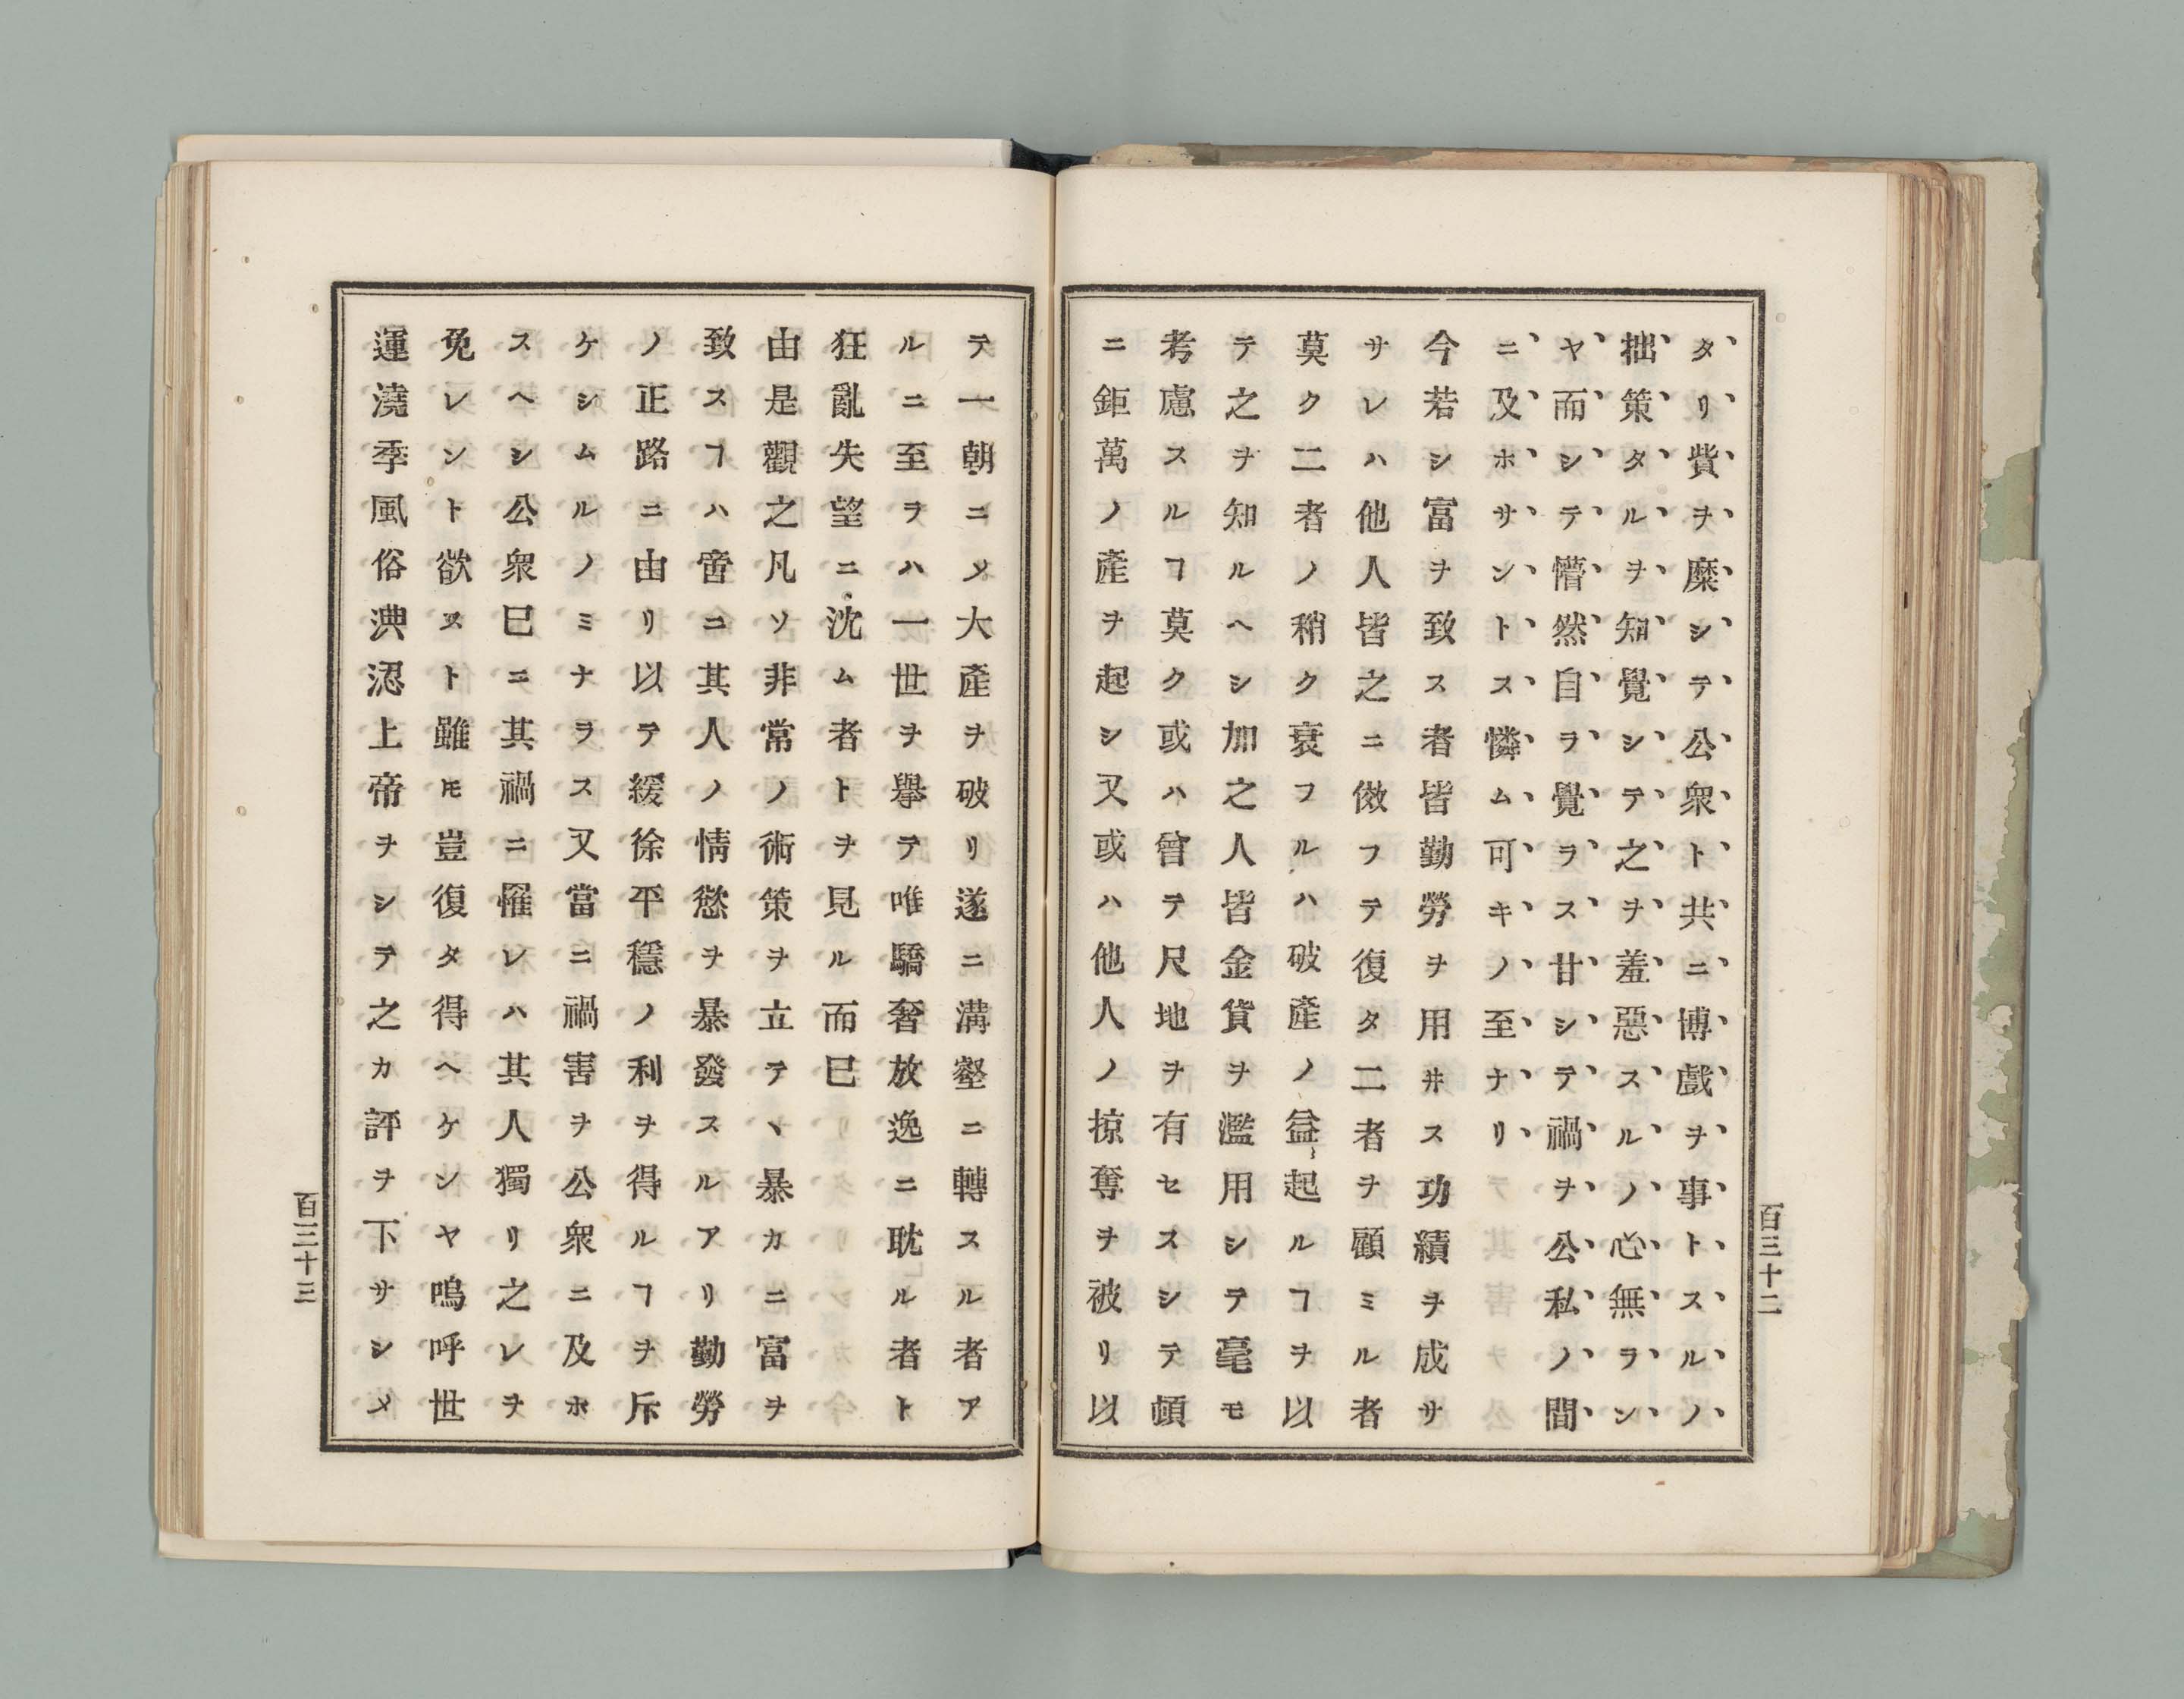 百三十二
タリ貲ヲ糜シテ公衆ト共ニ博戲ヲ事トスルノ
拙策タルヲ知覺シテ之ヲ羞惡スルノ心無ラン
ヤ而シテ懵然自ラ覺ラス甘シテ禍ヲ公私ノ間
ニ及ホサントス憐ム可キノ至ナリ
今若シ富ヲ致ス者皆勤勞ヲ用井ス功績ヲ成サ
サレハ他人皆之ニ傚フテ復タ二者ヲ顧ミル者
莫ク二者ノ稍ク衰フルハ破產ノ益〻起ルヿヲ以
テ之ヲ知ルヘシ加之人皆金貨ヲ濫用シテ毫モ
考慮スルヿ莫ク或ハ曾テ尺地ヲ有セスシテ頓
ニ鉅萬ノ產ヲ起シ又或ハ他人ノ掠奪ヲ被リ以
テ一朝ニメ大產ヲ破リ遂ニ溝壑ニ轉スル者ア
ルニ至ヲハ一世ヲ擧テ唯驕奢放逸ニ耽ル者ト
狂亂失望ニ沈ム者トヲ見ル而已
由是觀之凡ソ非常ノ術策ヲ立テ丶暴カニ富ヲ
致スヿハ啻ニ其人ノ情慾ヲ暴發スルアリ勤勞
ノ正路ニ由リ以テ緩徐平穩ノ利ヲ得ルヿヲ斥
ケシムルノミナラス又當ニ禍害ヲ公衆ニ及ホ
スヘシ公衆巳ニ其禍ニ罹レハ其人獨リ之レヲ
免レント欲スト雖𪜈豈復タ得ヘケンヤ嗚呼世
運澆季風俗淟涊上帝ヲシテ之カ評ヲ下サシメ
百三十三